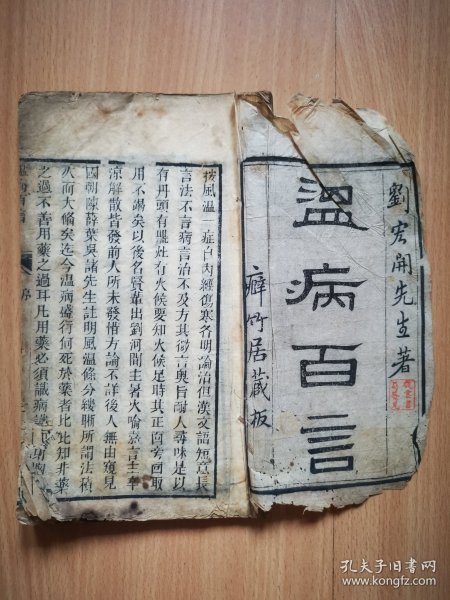 劉宏開先生著
溫病百言
癖竹居藏板
按風溫一症自內經傷寒各明論治但漢文語短意長
言法不言病言治不及方其微言奧旨耐人尋味是以
有丹頭有爐灶有火候要知火候是時其正面旁回取
用不竭矣以後名賢輩出劉河間主暑火喻嘉言主辛
涼解散皆發前人所未發惜方論不詳後人無由窺見
國朝陳薛葉吳諸先生註明風溫條分縷晰所謂法積
久而大備矣迄今溫病盛行何死於藥者比比知非藥
之過不善用藥之過耳凡用藥必須識病
序
孔夫子旧书网
www.kongfz.com